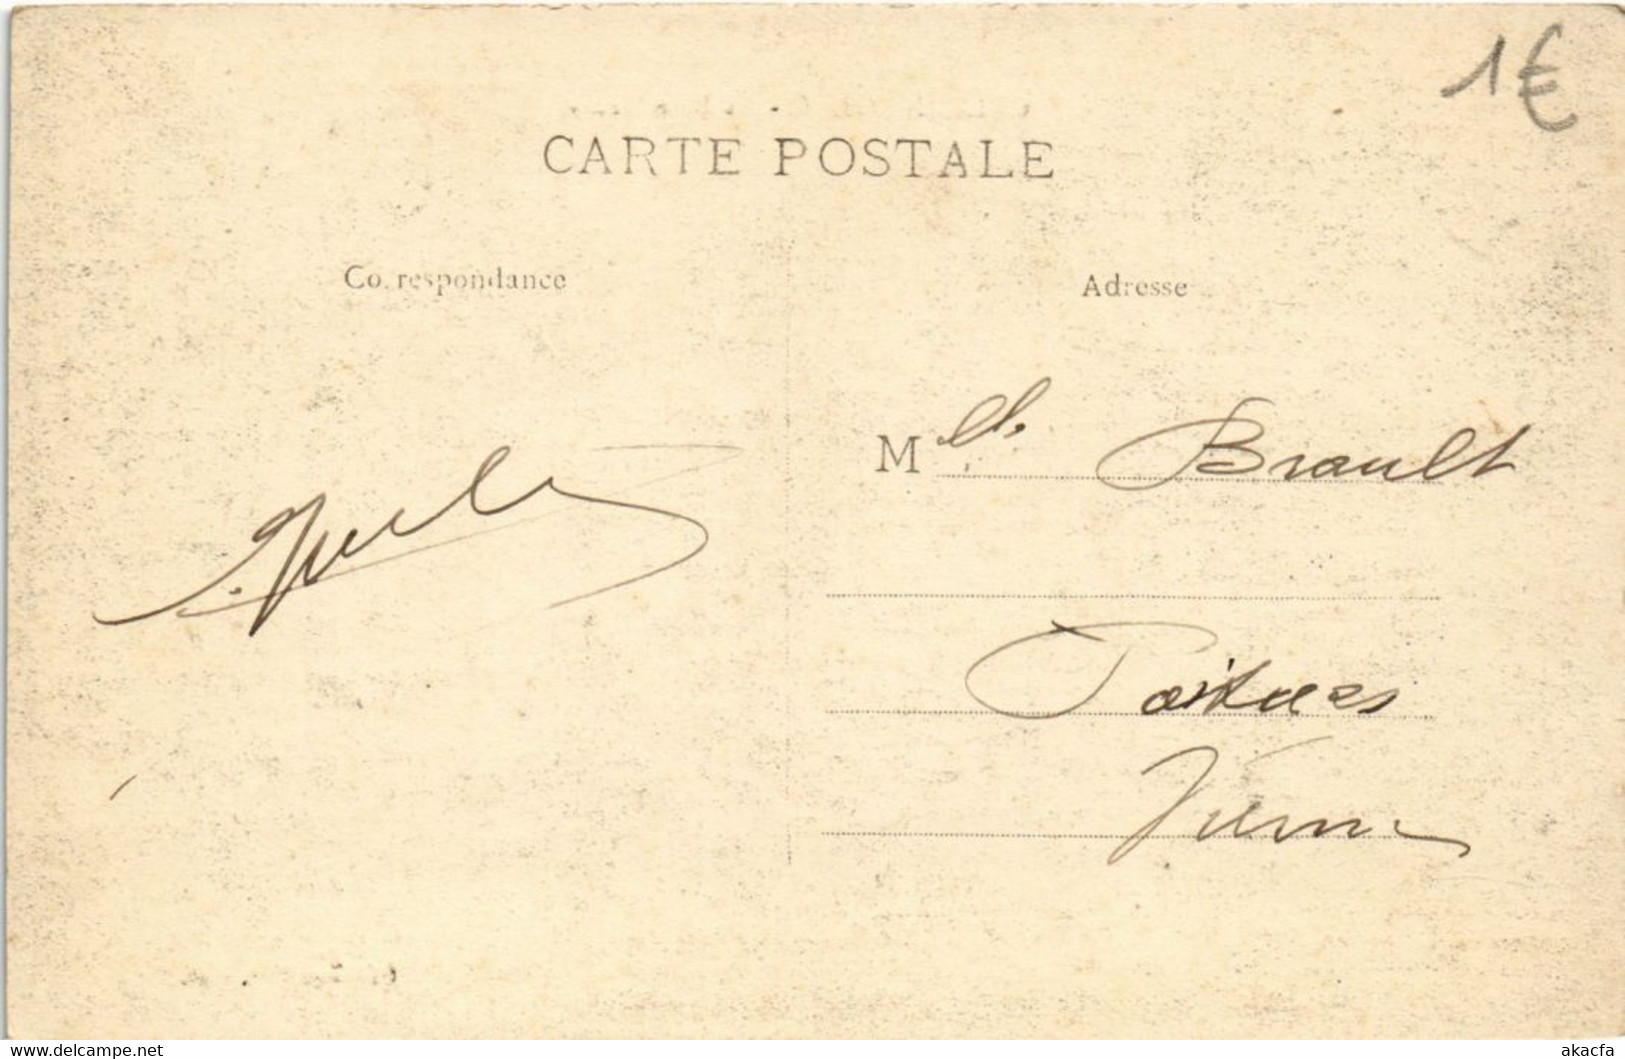 1€
CARTE POSTALE
Co.respondance
Adresse
Mlle Brault
Poitiers
Vienne
www.delcampe.net
akacfa